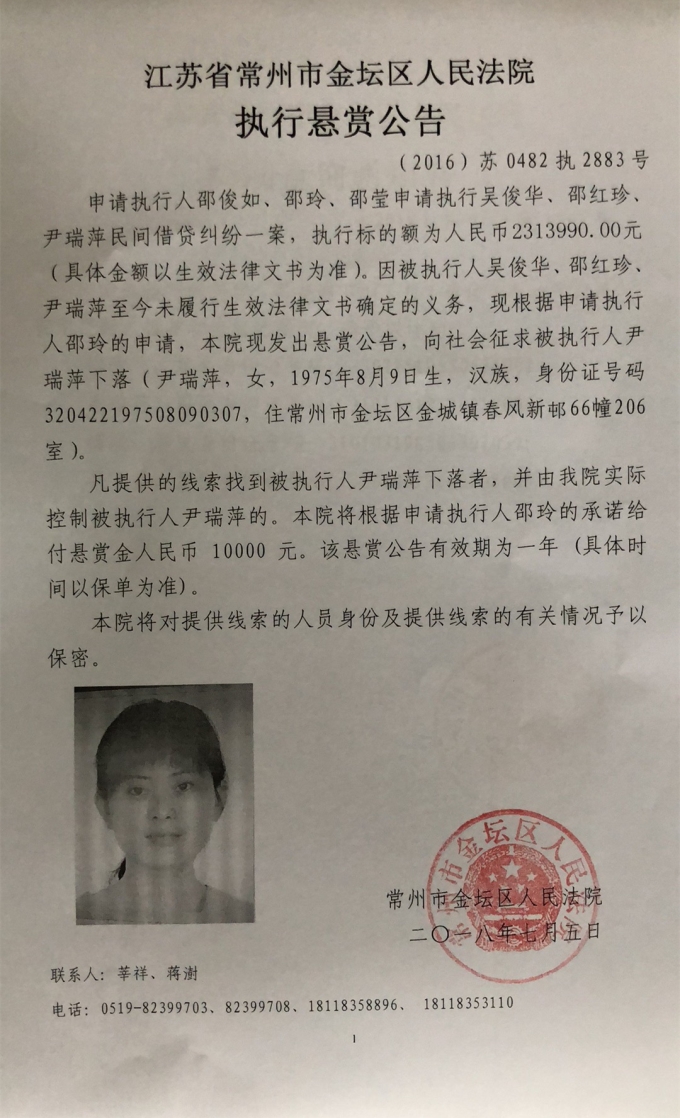 江苏省常州市金坛区人民法院
执行悬赏公告
（2016）苏 0482 执 2883 号
申请执行人邵俊如、邵玲、邵莹申请执行吴俊华、邵红珍、
尹瑞萍民间借贷纠纷一案，执行标的额为人民币2313990.00元
（具体金额以生效法律文书为准）。因被执行人吴俊华、邵红珍、
尹瑞萍至今未履行生效法律文书确定的义务，现根据申请执行
人邵玲的申请，本院现发出悬赏公告，向社会征求被执行人尹
瑞萍下落（尹瑞萍，女，1975年8月9日生，汉族，身份证号码
320422197508090307，住常州市金坛区金城镇春风新邨66幢206
室）。
凡提供的线索找到被执行人尹瑞萍下落者，并由我院实际
控制被执行人尹瑞萍的。本院将根据申请执行人邵玲的承诺给
付悬赏金人民币 10000 元。该悬赏公告有效期为一年（具体时
间以保单为准）。
本院将对提供线索的人员身份及提供线索的有关情况予以
保密。
常州市金坛区人民法院
常州市金坛区人民法院
二〇一八年七月五日
联系人：莘祥、蒋澍
电话：0519-82399703、82399708、18118358896、 18118353110
1